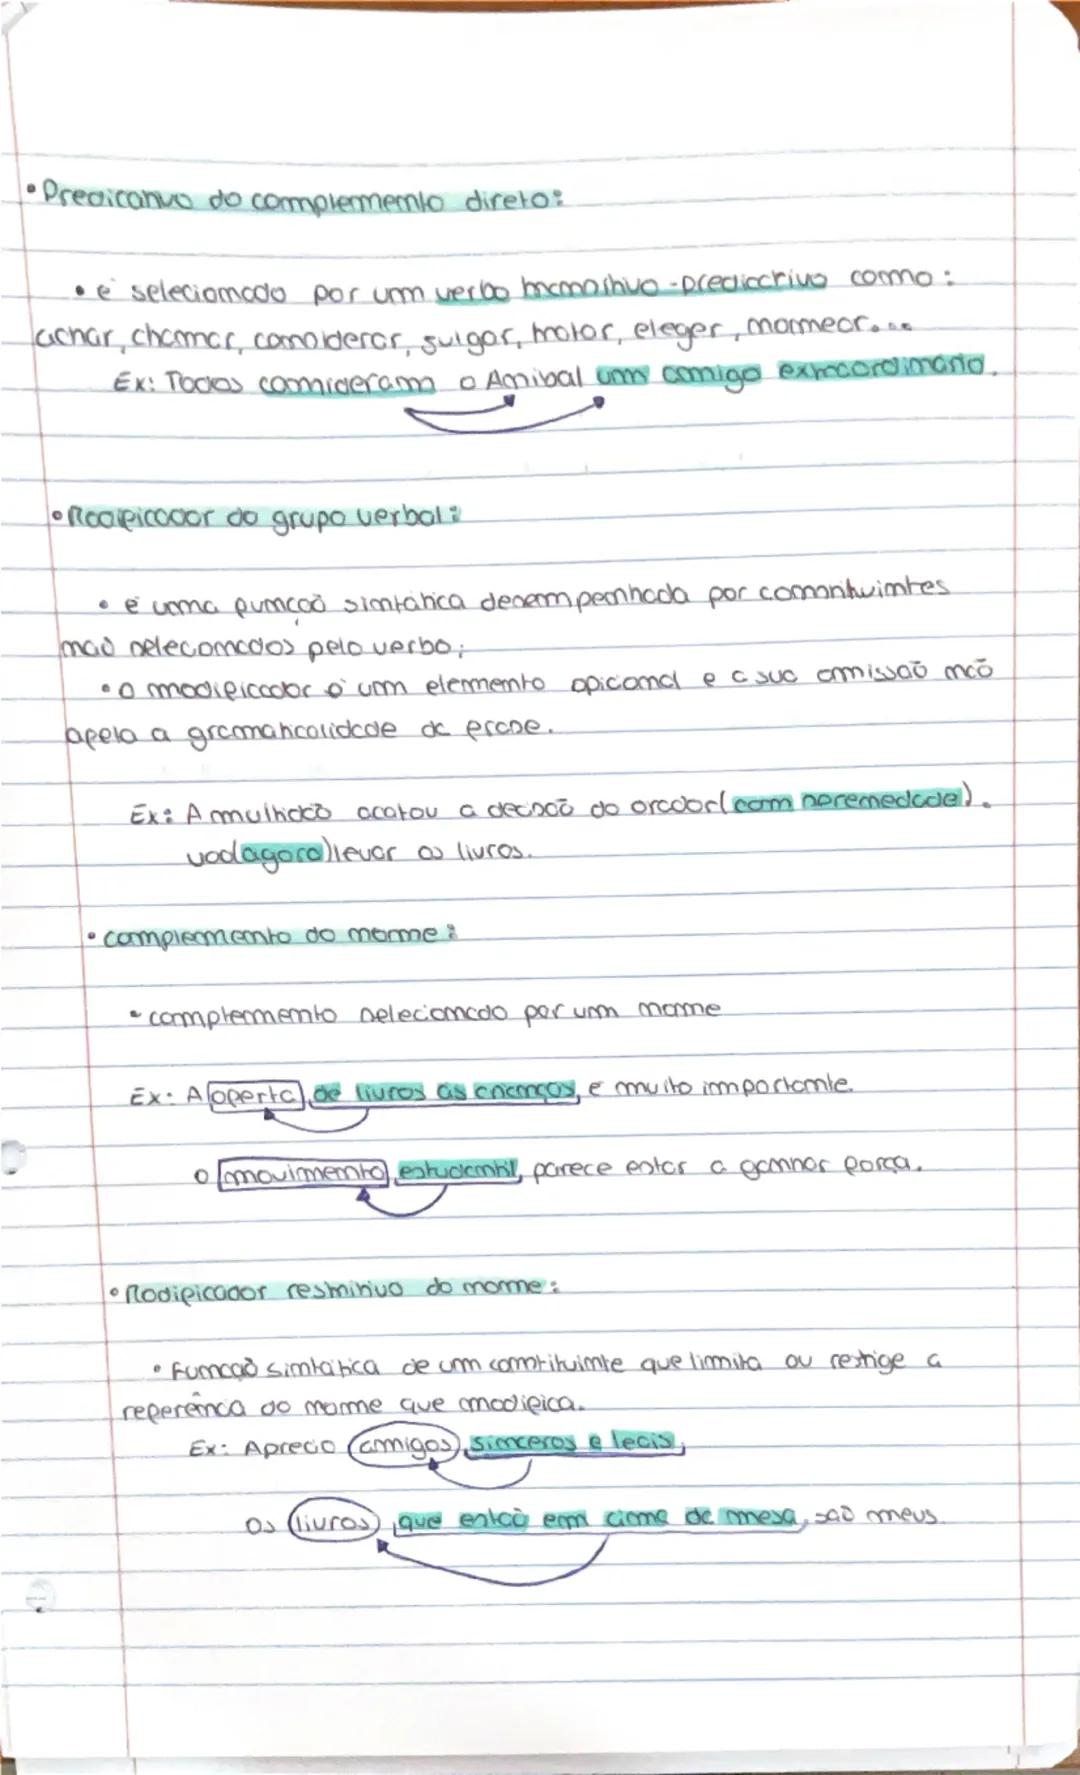 • Predicativo do complemento direto:
• é selecionado por um verbo transitivo-predicativo como:
achar, chamar, considerar, julgar, tratar, eleger, nomear...
Ex: Todos consideram o Anibal um amigo extraordinário.
• Modificador do grupo verbal:
• é uma função sintática desempenhada por constituintes
não selecionados pelo verbo;
• O modificador é um elemento opicional e a sua omissão não
afeta a gramaticalidade da frase.
Ex: A multidão acatou a decisão do orador (com serenidade).
Vou (agora) levar os livros.
• complemento do nome:
• complemento selecionado por um nome
Ex: A oferta de livros às crianças, é muito importante.
O movimento estudantil, parece estar a ganhar força.
• Modificador restritivo do nome:
• Função sintática de um constituinte que limita ou restrige a
referência do nome que modifica.
Ex: Aprecio amigos sinceros e leais,
Os livros, que estão em cima da mesa, são meus.